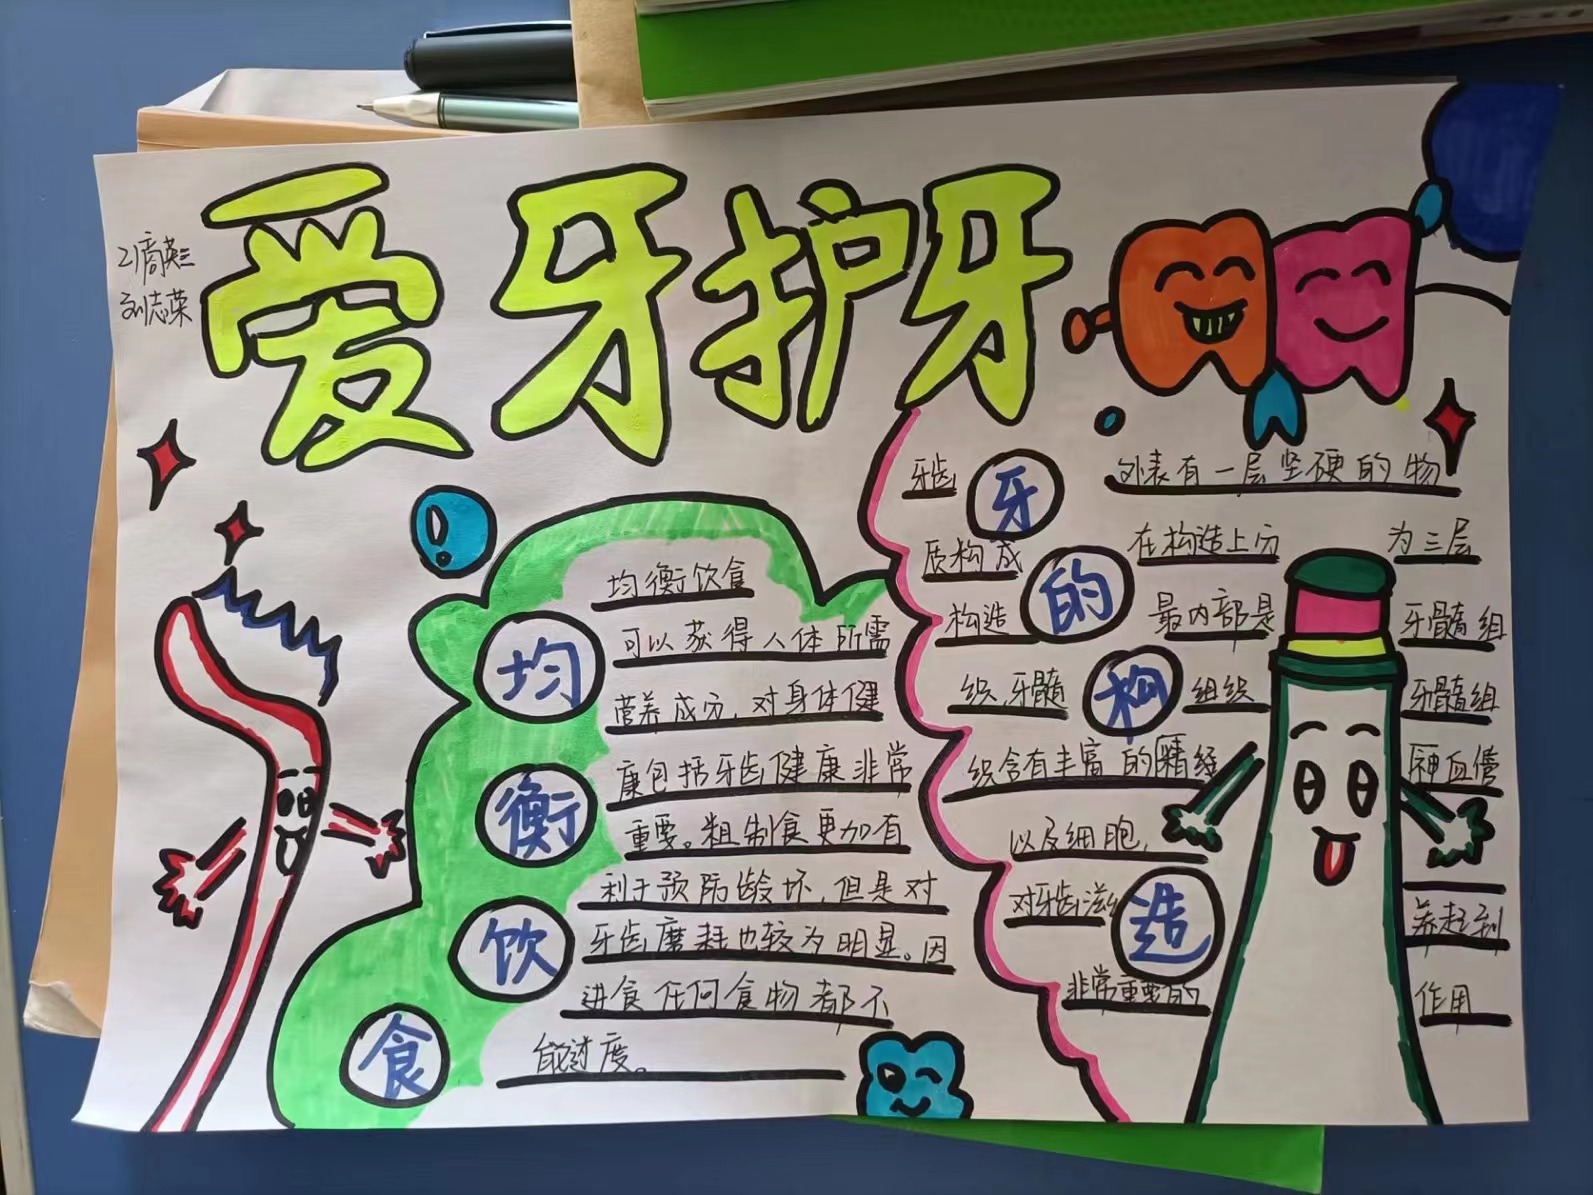 爱牙护牙
21商英三
刘志荣
均衡饮食
均衡饮食
可以获得人体所需
营养成分,对身体健
康包括牙齿健康非常
重要。粗制食更加有
利于预防龄坏,但是对
牙齿磨耗也较为明显。因
进食任何食物都不
能过度。
牙的构造
牙齿 外表有一层坚硬的物
质构成 在构造上分 为三层
构造 最内部是 牙髓组
织,牙髓 组织 牙髓组
织含有丰富的 经 血管
以及细胞,
对牙齿滋 养起到
非常重要的 作用